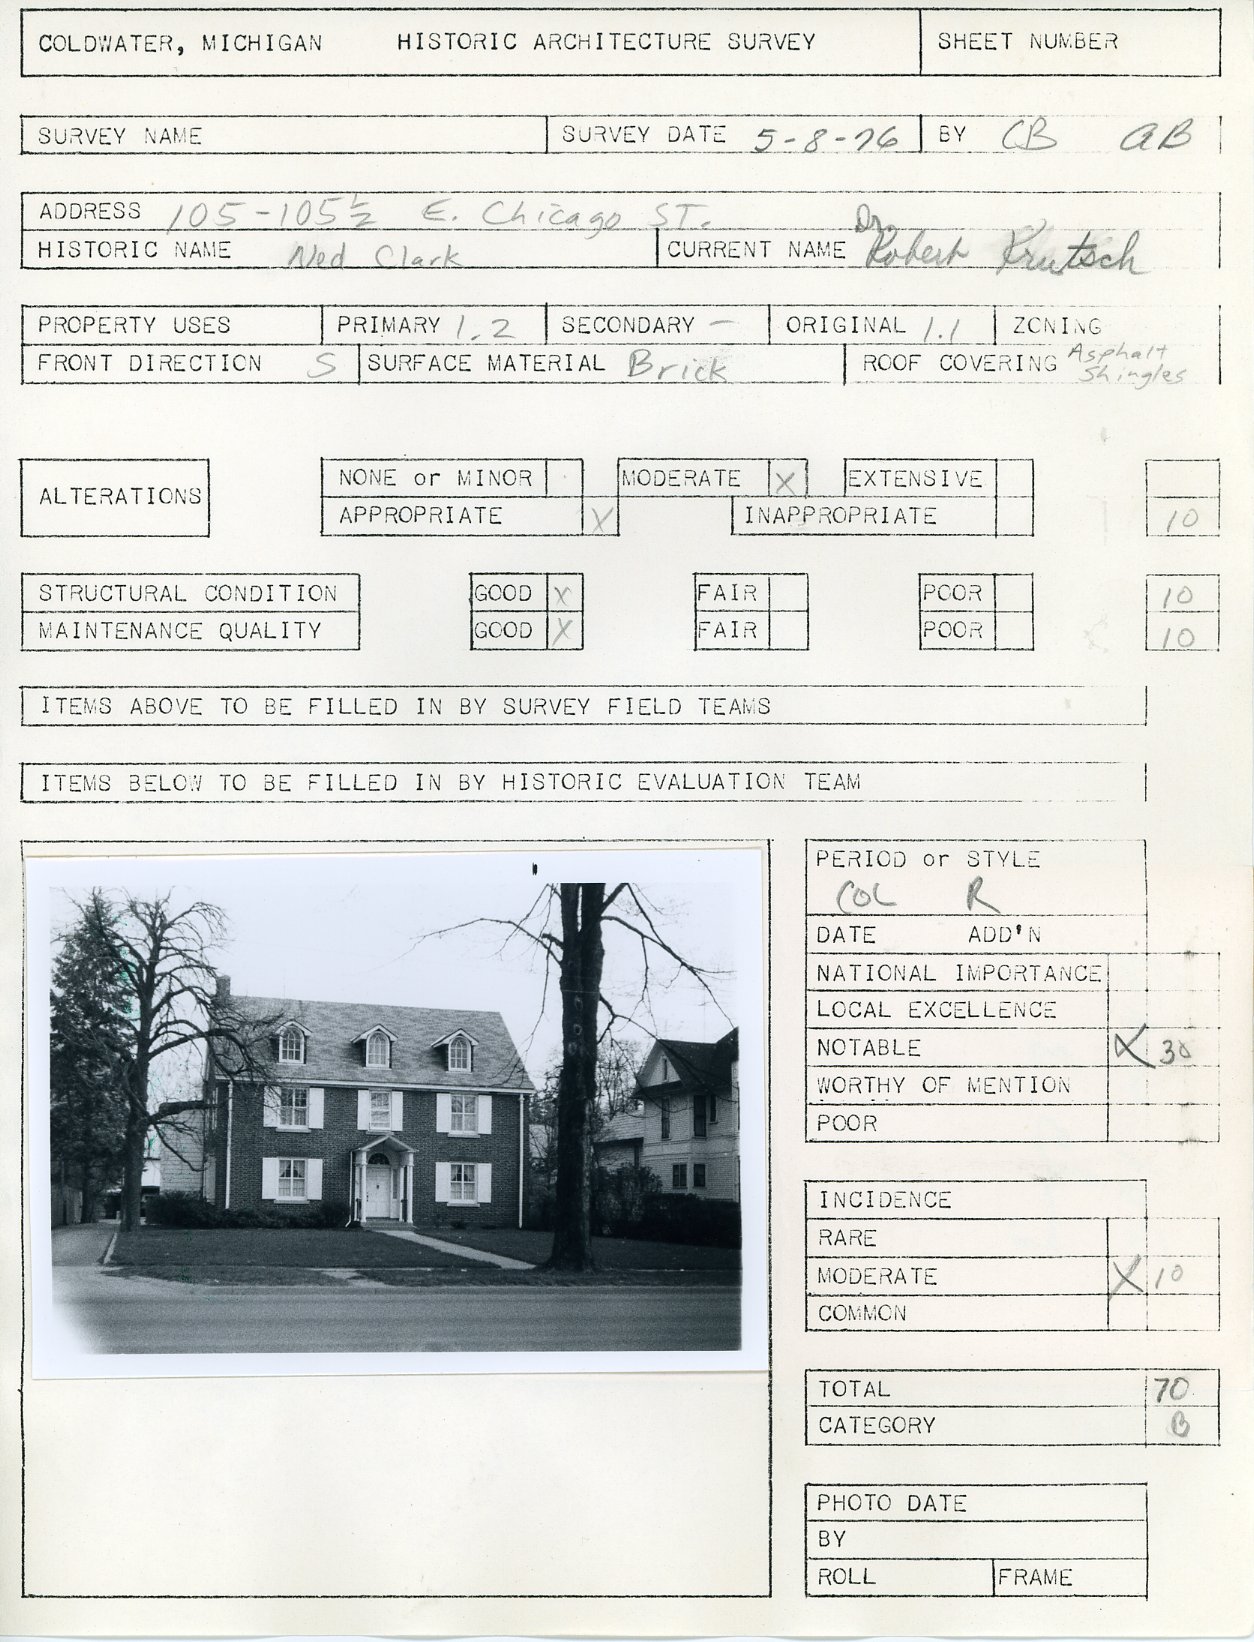 COLDWATER, MICHIGAN HISTORIC ARCHITECTURE SURVEY SHEET NUMBER
SURVEY NAME SURVEY DATE 5-8-76 BY CB AB
ADDRESS 105-105½ E. Chicago ST.
HISTORIC NAME Ned Clark CURRENT NAME Dr. Robert Krutsch
PROPERTY USES PRIMARY 1.2 SECONDARY - ORIGINAL 1.1 ZONING
FRONT DIRECTION S SURFACE MATERIAL Brick ROOF COVERING Asphalt Shingles
ALTERATIONS
NONE or MINOR MODERATE X EXTENSIVE
APPROPRIATE X INAPPROPRIATE 10
STRUCTURAL CONDITION GOOD X FAIR POOR 10
MAINTENANCE QUALITY GOOD X FAIR POOR 10
ITEMS ABOVE TO BE FILLED IN BY SURVEY FIELD TEAMS
ITEMS BELOW TO BE FILLED IN BY HISTORIC EVALUATION TEAM
PERIOD or STYLE
COL R
DATE ADD'N
NATIONAL IMPORTANCE
LOCAL EXCELLENCE
NOTABLE X 30
WORTHY OF MENTION
POOR
INCIDENCE
RARE
MODERATE X 10
COMMON
TOTAL 70
CATEGORY B
PHOTO DATE
BY
ROLL FRAME